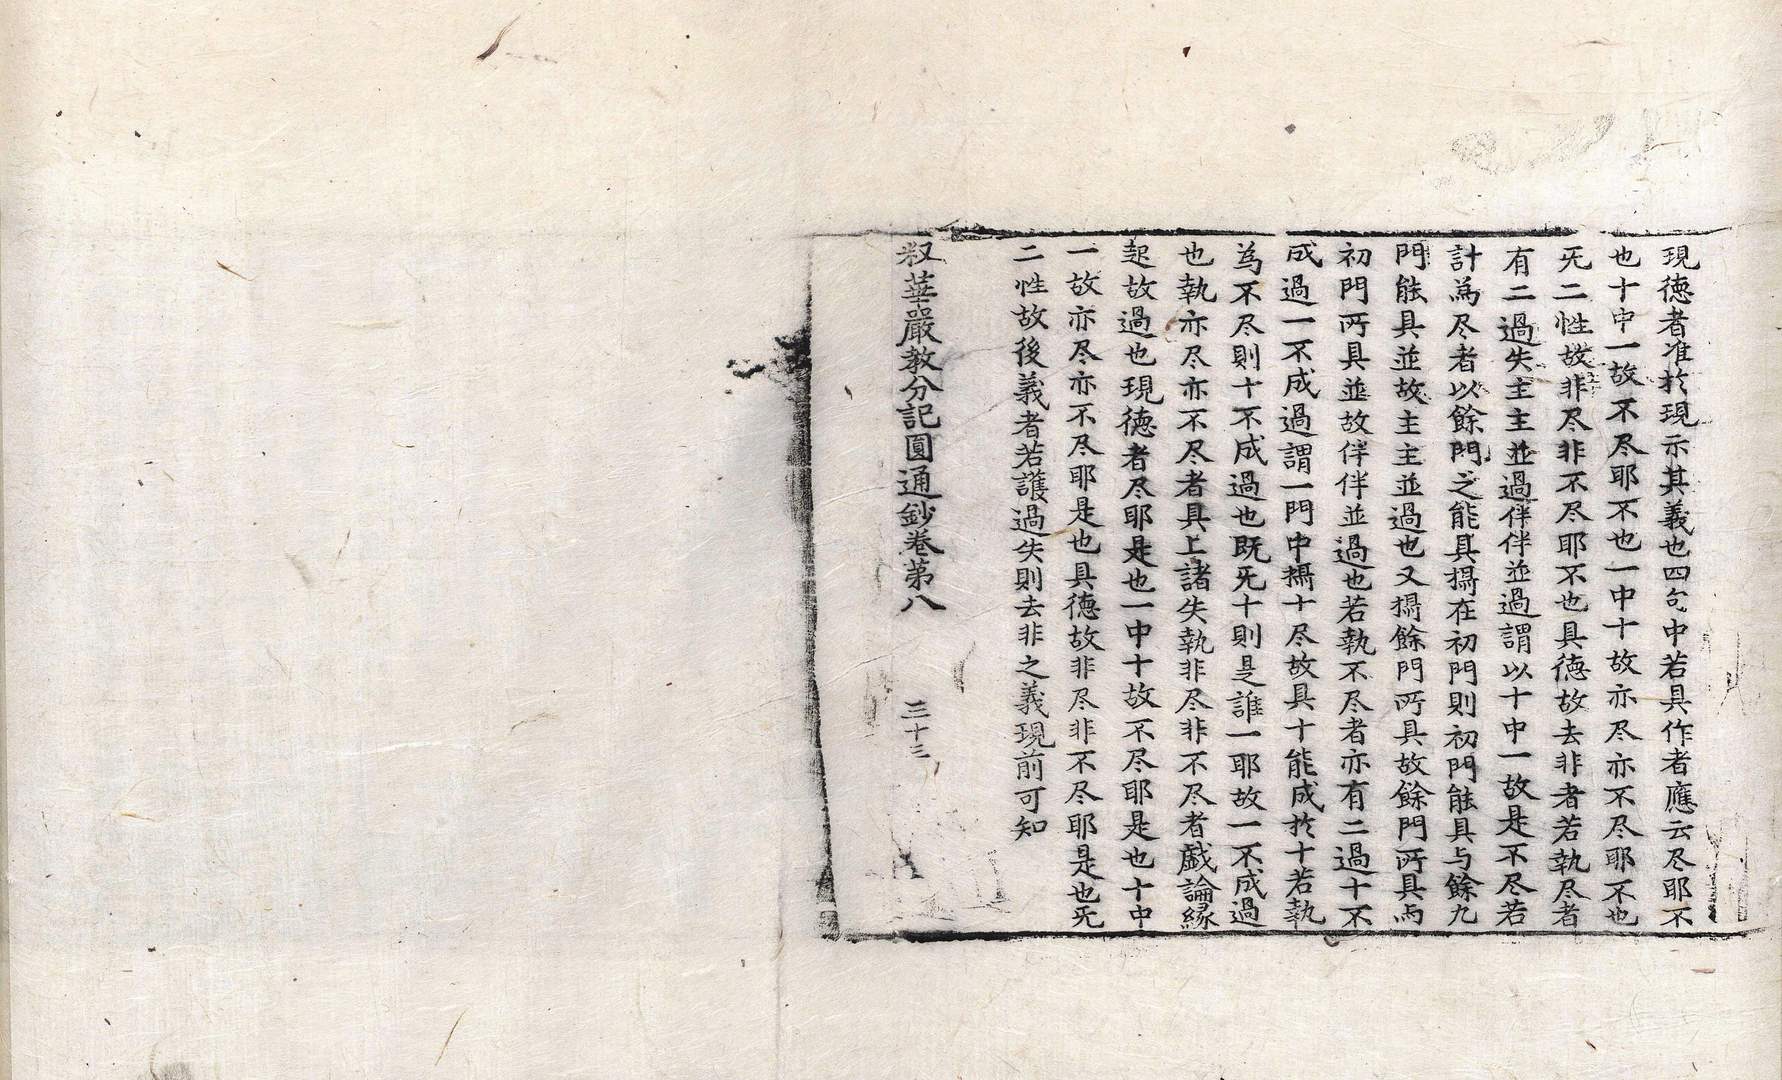 現德者准扵現示其義也四句中若具作者應云尽耶不
也十中一故不尽耶不也一中十故亦尽亦不尽耶不也
旡二性故非尽非不尽耶不也具德故去非者若執尽者
有二過失主主並過伴伴並過謂以十中一故是不尽若
計為尽者以餘門之能具攝在初門則初門能具与餘九
門能具並故主主並過也又攝餘門所具故餘門所具与
初門所具並故伴伴並過也若執不尽者亦有二過十不
成過一不成過謂一門中攝十尽故具十能成扵十若執
為不尽則十不成過也既旡十則是誰一耶故一不成過
也執亦尽亦不尽者具上諸失執非尽非不尽者戱論緣
起故過也現德者尽耶是也一中十故不尽耶是也十中
一故亦尽亦不尽耶是也具德故非尽非不尽耶是也旡
二性故後義者若護過失則去非之義現前可知
釈華嚴教分記圓通鈔卷第八
三十三